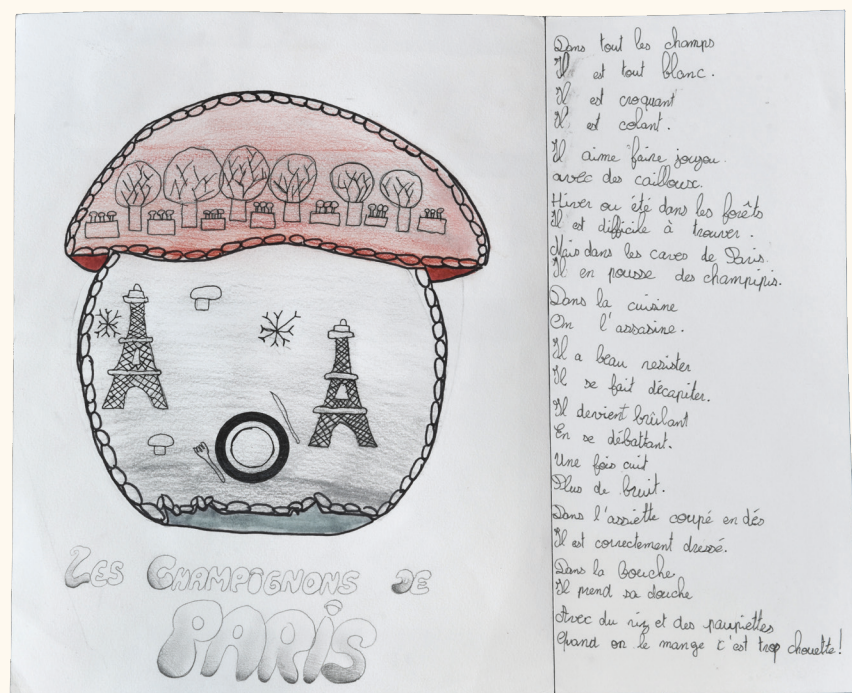 Les Champignons de
Paris
Dans tout les champs
Il est tout blanc.
Il est croquant
Il est colant.
Il aime faire joujou
avec des cailloux.
Hiver ou été dans les forêts
Il est difficile à trouver.
Mais dans les caves de Paris.
Il en pousse des champipis.
Dans la cuisine
On l'assasine.
Il a beau resister
Il se fait décapiter.
Il devient brûlant
En se débattant.
Une fois cuit
Plus de bruit.
Dans l'assiette coupé en dés
Il est correctement dressé.
Dans la bouche
Il prend sa douche
Avec du riz et des paupiettes
Quand on le mange c'est trop chouette!